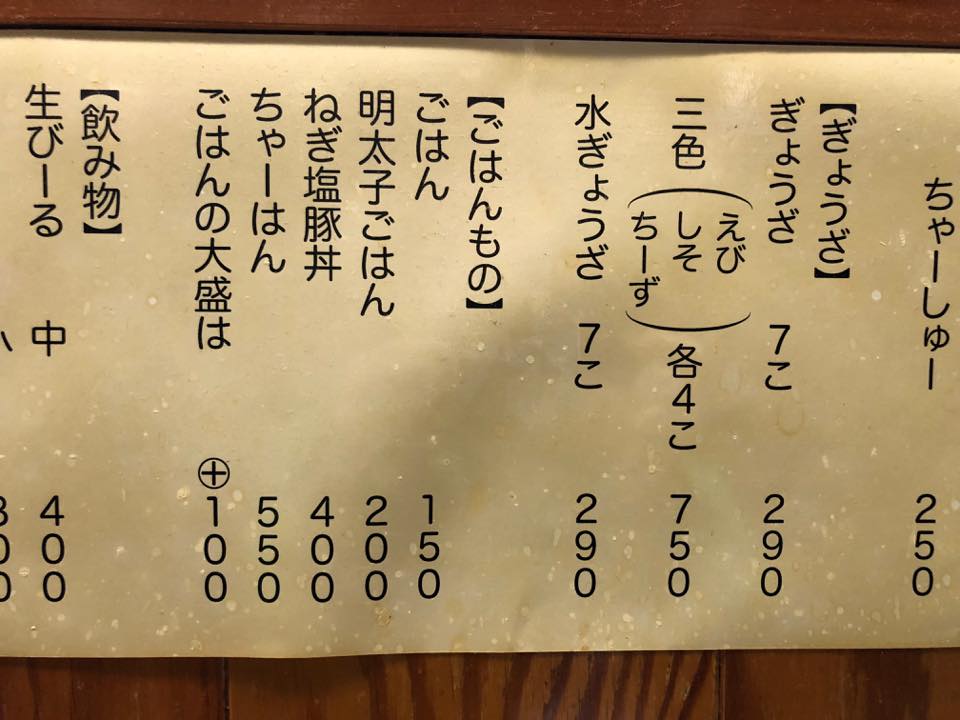 ちゃーしゅー 250
【ぎょうざ】
ぎょうざ 7こ 290
三色（えび しそ ちーず）各4こ 750
水ぎょうざ 7こ 290
【ごはんもの】
ごはん 150
明太子ごはん 200
ねぎ塩豚丼 400
ちゃーはん 550
ごはんの大盛は ⊕100
【飲み物】
生びーる 中 400